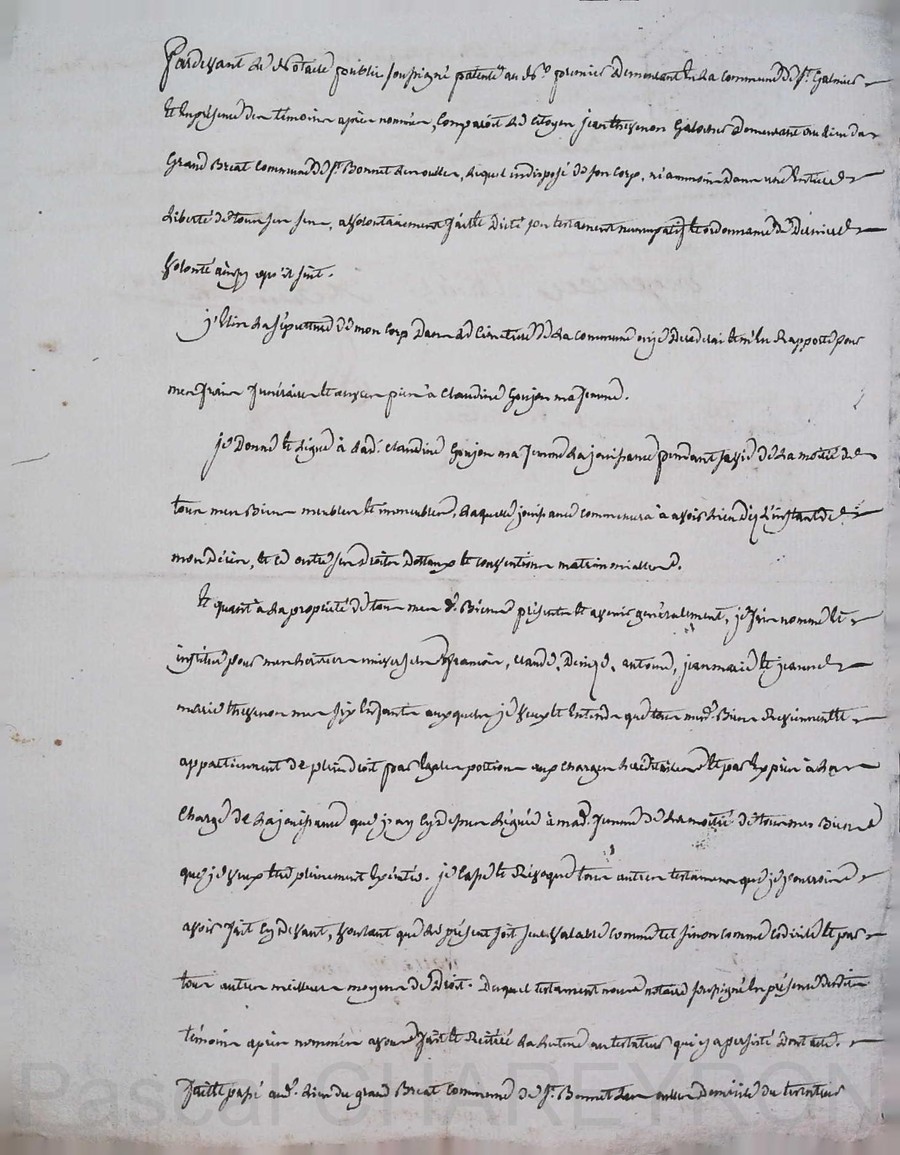 Pardevant le Notaire public soussigné patenté au no premier demeurant en la commune de St. Galmier
et en présence des témoins après nommés, Comparoit le citoyen jean thevenon Galocher demeurant au lieu du
Grand Breat Commune de St. Bonnet les oulles, lequel indisposé de son Corp, néammoins dans une Entiere
Liberté de tous ses sens, a Volontairement fait et Dicté son testament nuncupatif et ordonnance de Derniere
Volonté ainsy qu'il suit.
j'Elis la sépulture de mon Corp dans le Cimetiere de la commune ou je Decederai et m'En rapporte pour
mes frais funéraires et œuvres pies à Claudine Goujon ma femme.
je Donne et Légue à lad. Claudine Goujon ma femme la jouissance pendant sa vie de la moitié de
tous mes Biens meubles et immeubles, laquelle jouissance commencera à avoir lieu Dez l'instant de
mon Décès, et ce outre ses Droits Dottaux et conventions matrimoniales.
Et quant à la propriété de tous mes d. Biens présents et avenir généralement, je fais nomme et
institue pour mes héritiers universels françois, Claude, Denize, antoine, jean marie et jeanne
marie thevenon mes six Enfants auxquels je Veux et Entends que tous mesd. Biens reviennent et
appartiennent de plein droit par Egales portions aux charges héréditaires et par Exprès à la
Charge de la jouissance que j'ay Cy dessus Léguée à mad. femme de la moitié de tous mes Biens
que je veux Etre pleinement Exécutés. je Casse et Révoque tous autres testaments que je pourrois
avoir fait Cy devant, Voulant que le présent soit seul Valable comme tel sinon comme Codicile et par
tous autres meilleurs moyens de Droit. Duquel testament nous notaire soussigné En présence desdits
témoins après nommés avons fait et Réitéré la lecture au testateur qui y a persisté Dont acte.
fait et passé aud. lieu du grand Breat Commune de St. Bonnet les oulles Domicile du testateur
Pascal CHAREYRON